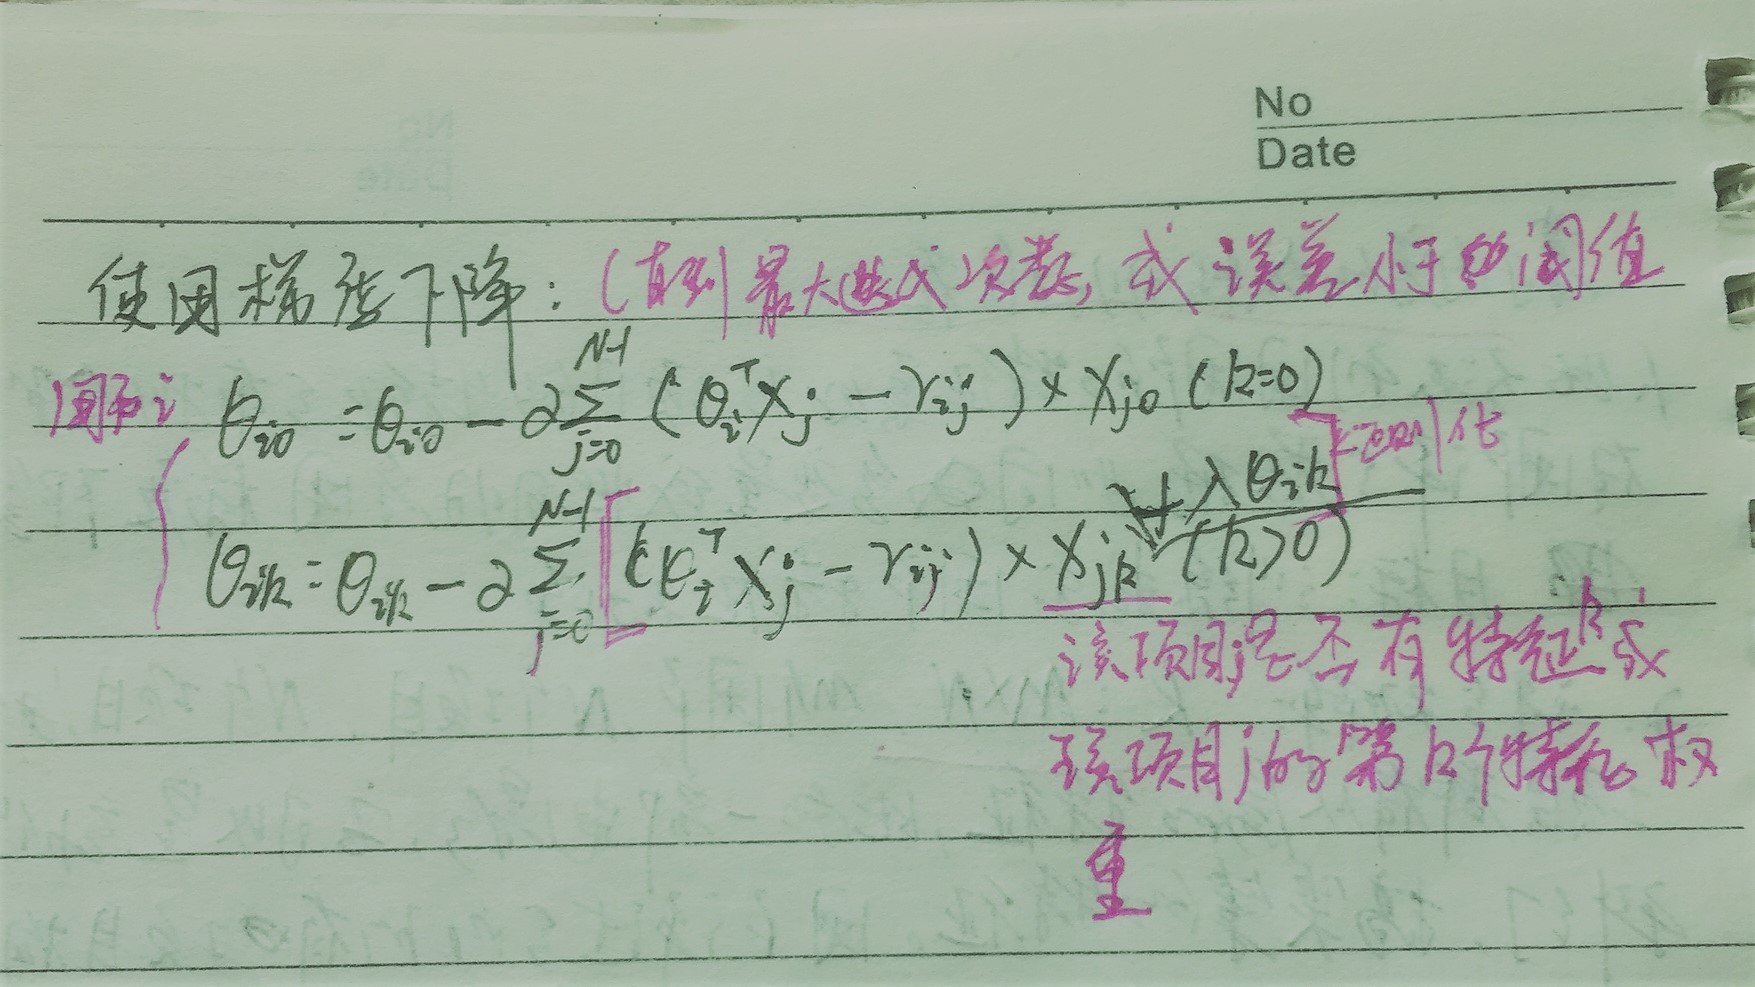 No
Date
使用梯度下降：(直到最大迭代次数，或误差小于阈值
用户i θi0 = θi0 − α∑(N-1, j=0) (θiᵀXj − rij) × Xj0 (k=0)
+ λθik 正则化
θik = θik − α∑(N-1, j=0) [((θiᵀXj − rij) × Xjk (k>0)
该项目j是否有特征k或
该项目j的第k个特征权
重